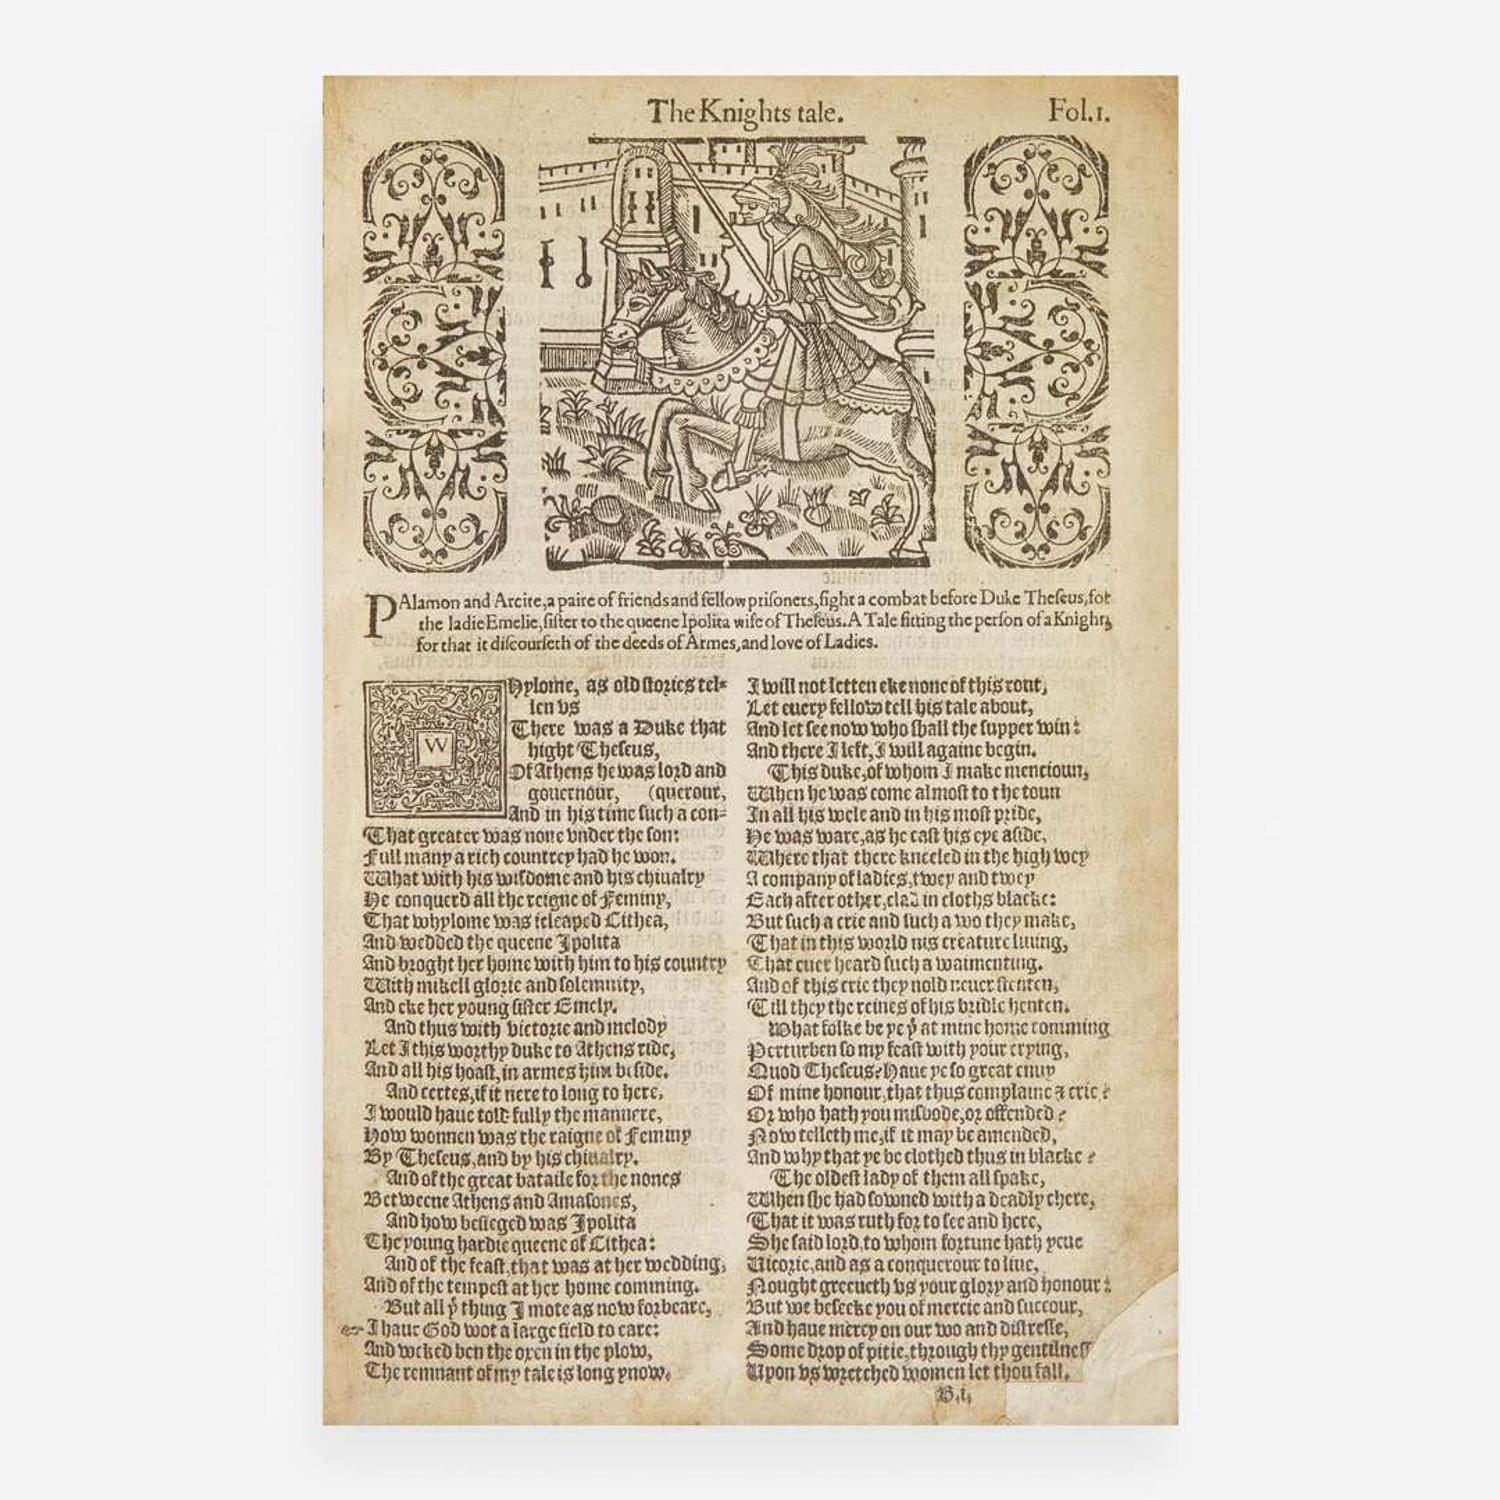 The Knights tale.
Fol.1.
PAlamon and Arcite,a paire of friends and fellow prisoners,fight a combat before Duke Theseus,for
the ladie Emelie,sister to the queene Ipolita wife of Theseus.A Tale fitting the person of a Knight,
for that it discourseth of the deeds of Armes,and love of Ladies.
WHylome, as old stories tel=
len vs
There was a Duke that
hight Theseus,
Of Athens he was lord and
gouernour, (querour,
And in his time such a con=
That greater was none vnder the son:
Full many a rich countrey had he won.
What with his wisdome and his chiualry
He conquerd all the reigne of Feminy,
That whylome was icleaped Cithea,
And wedded the queene Ipolita
And broght her home with him to his country
With mikell glorie and solemnity,
And eke her young sister Emely.
And thus with victorie and melody
Let I this worthy duke to Athens ride,
And all his hoast,in armes him beside.
And certes,if it nere to long to here,
I would haue told fully the mannere,
How wonnen was the raigne of Feminy
By Theseus,and by his chiualry.
And of the great bataile for the nones
Betweene Athens and Amasones,
And how besieged was Ipolita
The young hardie queene of Cithea:
And of the feast,that was at her wedding,
And of the tempest at her home comming.
But all þͭ thing I mote as now forbeare,
☞I haue God wot a large field to eare:
And weked ben the oxen in the plow,
The remnant of my tale is long ynow.
I will not letten eke none of this rout,
Let euery fellow tell his tale about,
And let see now who shall the supper win:
And there I left,I will againe begin.
This duke,of whom I make mencioun,
When he was come almost to the toun
In all his wele and in his most pride,
He was ware,as he cast his eye aside,
Where that there kneeled in the high wey
A company of ladies,twey and twey
Each after other,clad in cloths blacke:
But such a crie and such a wo they make,
That in this world nis creature liuing,
That euer heard such a waimenting.
And of this crie they nold neuer stenten,
Till they the reines of his bridle henten.
What folke be ye þͭ at mine home comming
Perturben so my feast with your crying,
Quod Theseus?Haue ye so great enuy
Of mine honour,that thus complaine & crie?
Or who hath you misbode,or offended?
Now telleth me,if it may be amended,
And why that ye be clothed thus in blacke?
The oldest lady of them all spake,
When she had sowned with a deadly chere,
That it was ruth for to see and here,
She said lord,to whom fortune hath yeue
Uicorie,and as a conquerour to liue,
Nought greeueth vs your glory and honour:
But we beseeke you of mercie and succour,
And haue mercy on our wo and distresse,
Some drop of pitie,through thy gentilness
Upon vs wretched women let thou fall.
B.i.